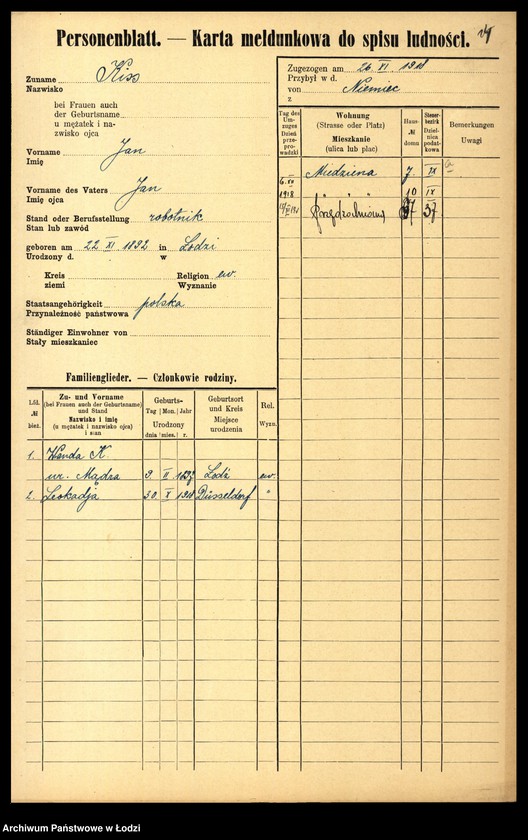 Personenblatt. — Karta meldunkowa do spisu ludności.
Zuname Kiss
Nazwisko
bei Frauen auch
der Geburtsname
u mężatek i na-
zwisko ojca
Vorname Jan
Imię
Vorname des Vaters Jan
Imię ojca
Stand oder Berufsstellung robotnik
Stan lub zawód
geboren am 22 XI 1892 in Łodzi
Urodzony d. w
Kreis Religion ew.
ziemi Wyznanie
Staatsangehörigkeit polska
Przynależność państwowa
Ständiger Einwohner von
Stały mieszkaniec
Familienglieder. — Członkowie rodziny.
Lfd. № bież.
Zu- und Vorname
(bei Frauen auch der Geburtsname)
und Stand
Nazwisko i imię
(u mężatek i nazwisko ojca)
i stan
Geburts-
Tag Mon. Jahr
Urodzony
dnia mies. r.
Geburtsort
und Kreis
Miejsce
urodzenia
Rel.
Wyzn.
1. Wanda K.
ur. Mądra 9. II Łodź ew.
2. Leokadja 30. X 1918 Düsseldorf "
Zugezogen am 26 XI. 1918
Przybył w d.
von Niemiec
z
Tag des
Um-
zuges
Dzień
prze-
pro-
wadzki
Wohnung
(Strasse oder Platz)
Mieszkanie
(ulica lub plac)
Haus-
№
domu
Steuer-
bezirk
Dziel-
nica
podat-
kowa
Bemerkungen
Uwagi
Miedziana 7. IX
6. XII 1918 " " 10 IX
37
Archiwum Państwowe w Łodzi